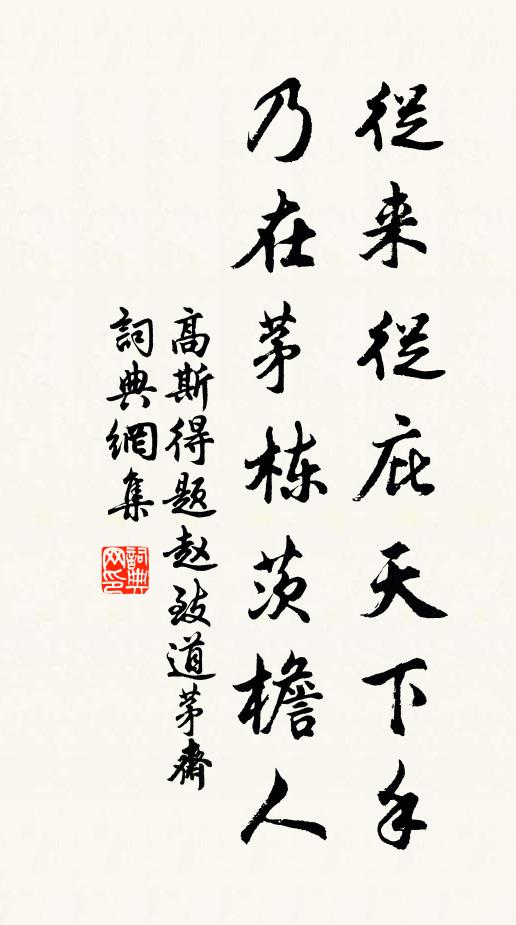 從来從庇天下手
乃在茅棟茨檐人
高斯得题赵致道茅齋
詞典網集
詞典网印